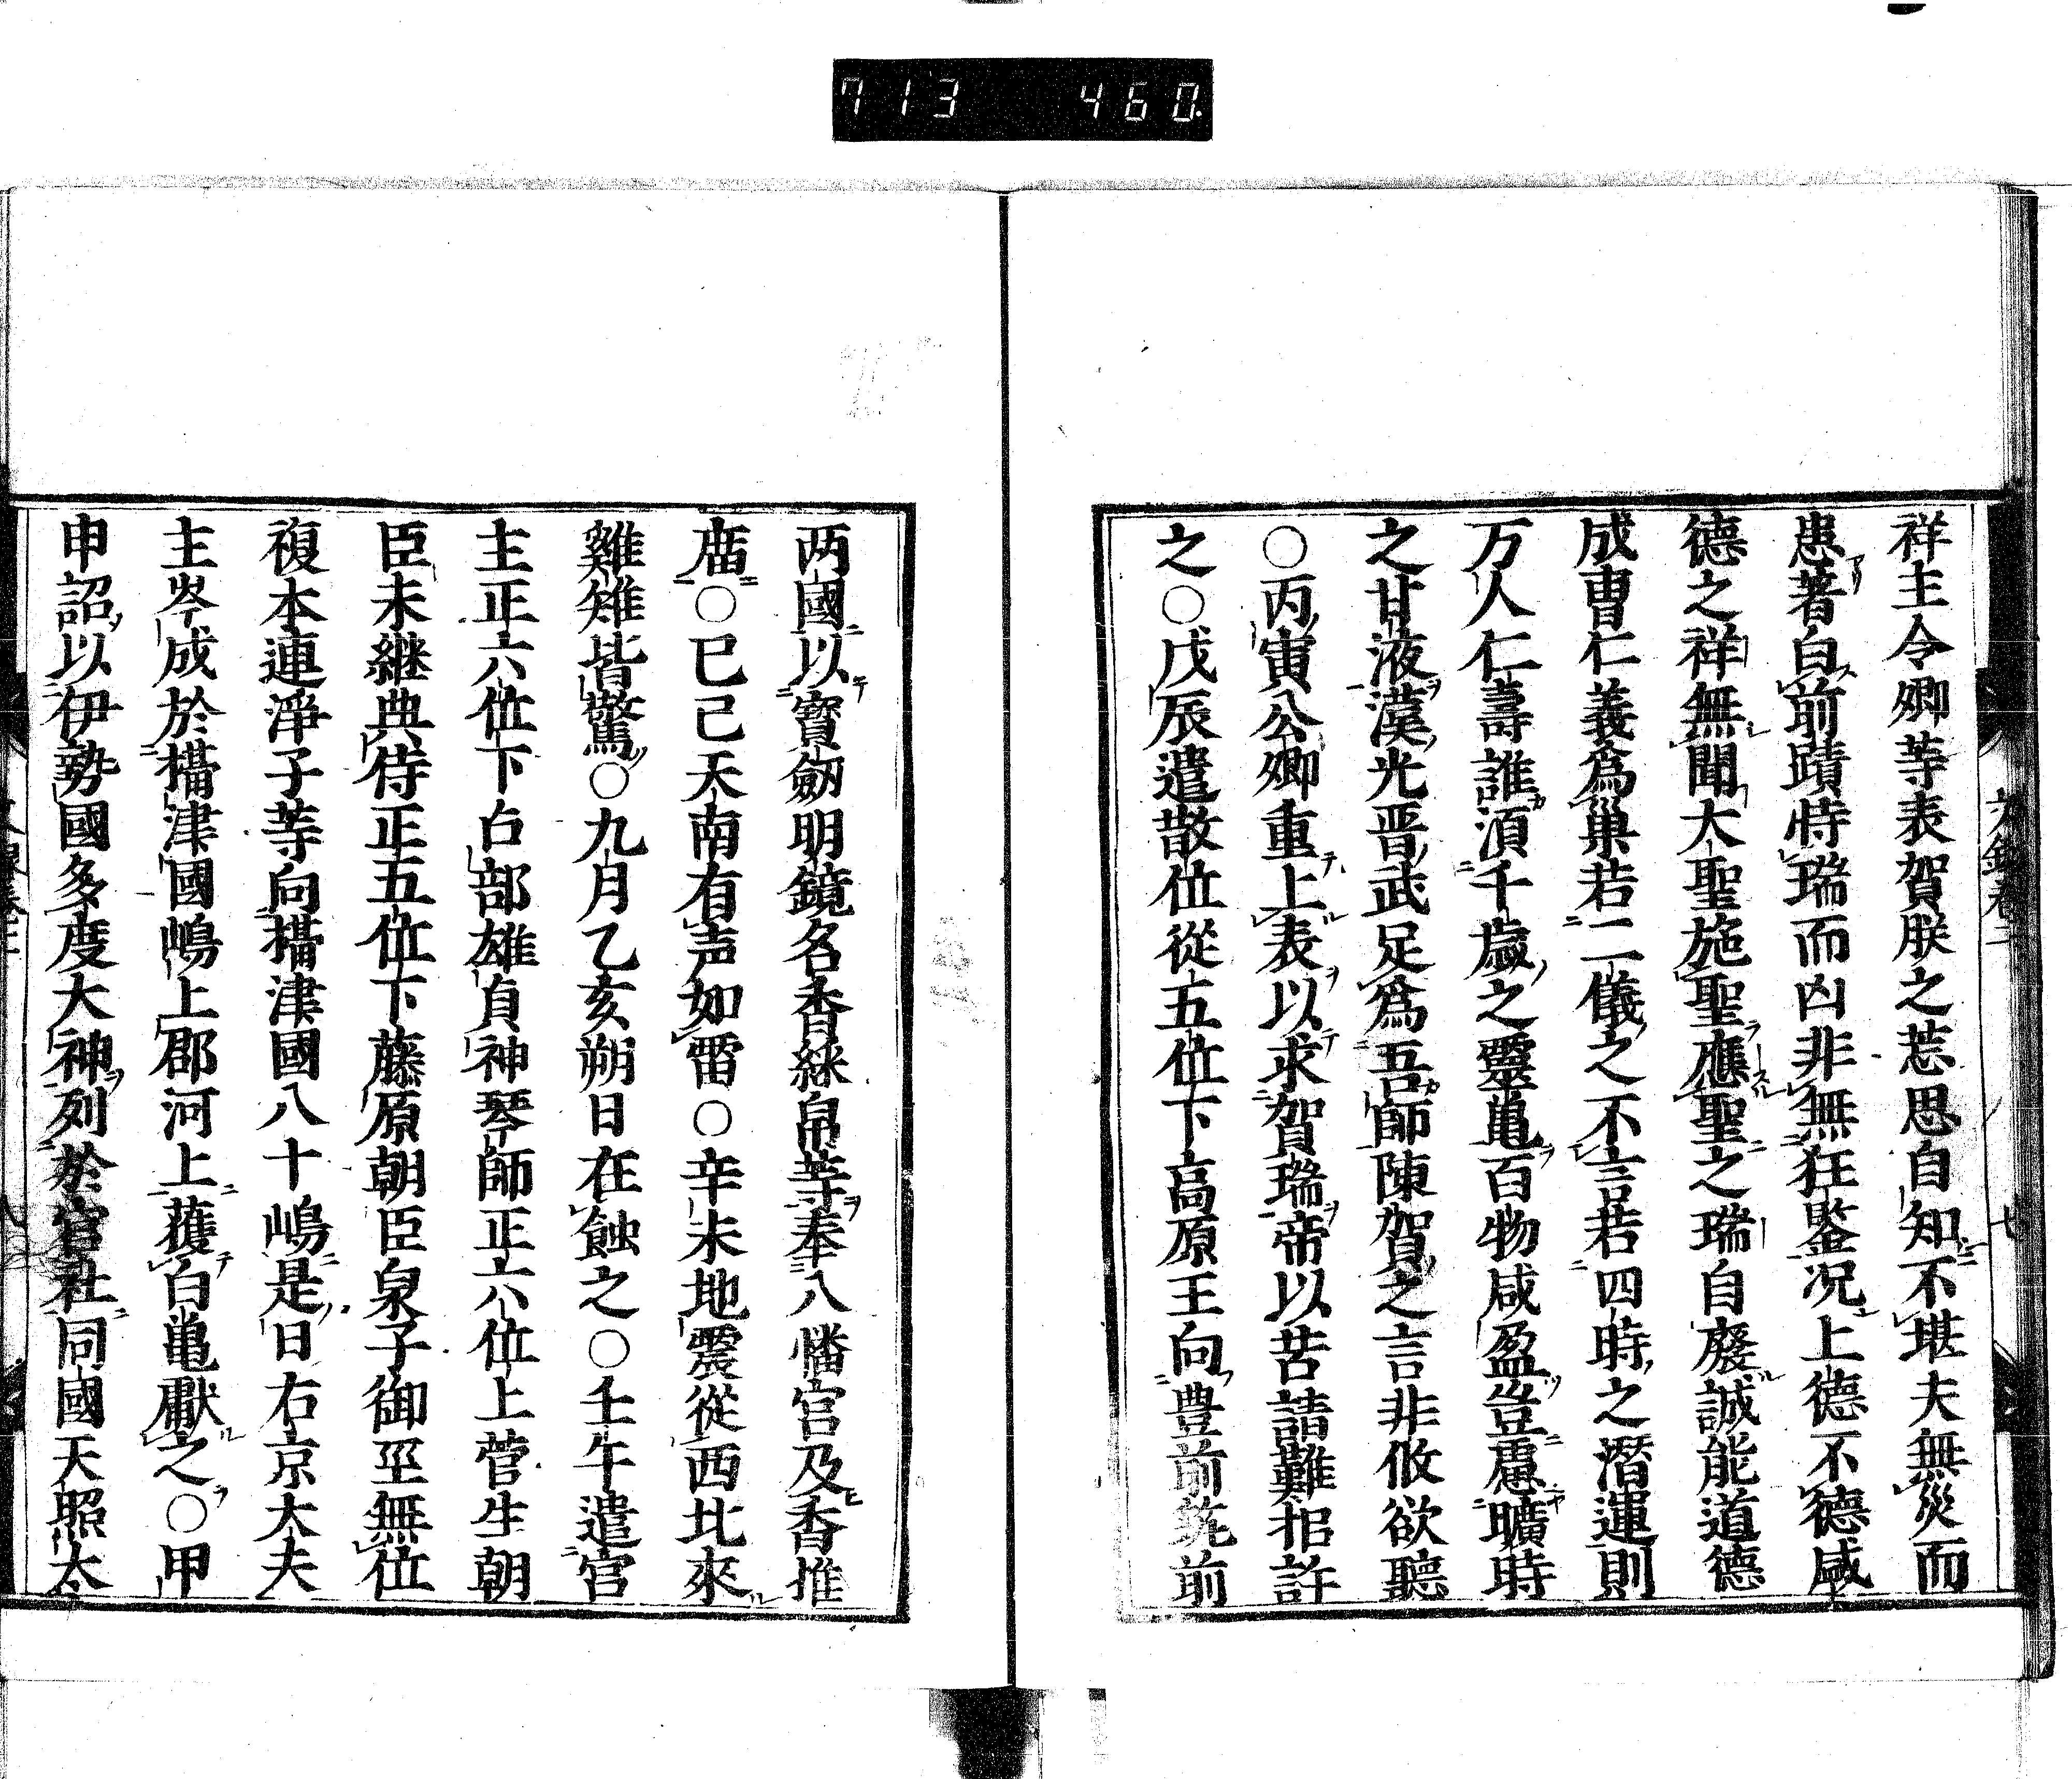 713 460.
祥主令卿等表賀朕之惹思自知不堪夫無災而
患著白前蹟恃瑞而凶非無狂鍳况上德不德咸
德之祥無聞大聖施聖應聖之瑞自廢誠能道德
成曹仁義爲巢若二儀之不言若四時之潜運則
万人仁壽誰湏千歲之靈亀百物咸盈豈慮曠時
之甘液漢光晋武足爲吾師陳賀之言非攸欲聽
○丙寅公卿重上表以求賀瑞帝以苦請難拒許
之○戊辰遣散位從五位下高原王向豊前筑前
两國以寶劒明鏡名香綵帛等奉八幡宮及香推
廟○已己天南有声如雷○辛未地震從西北來
雞雉皆驚○九月乙亥朔日在蝕之○壬午遣官
主正六位下占部雄貞神琴師正六位上菅生朝
臣末継典侍正五位下藤原朝臣泉子御巫無位
複本連淨子等向攝津國八十嶋是日右京大夫
主岑成於攝津國嶋上郡河上獲白亀獻之○甲
申詔以伊勢國多度大神列於官社同國天照太